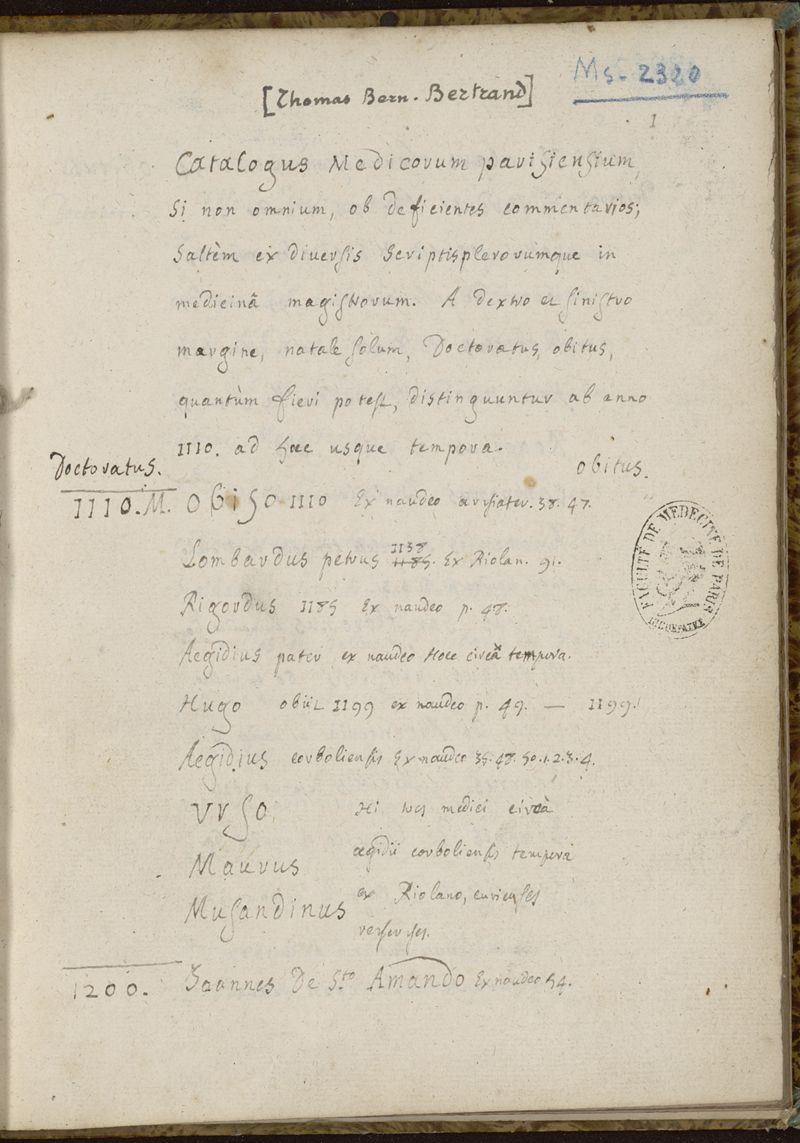 [Thomas Bern. Bertrand]
Ms. 2320
1
Catalogus Medicorum parisiensium,
Si non omnium, ob deficientes commentarios;
Saltèm ex diversis Scriptisplerorumque in
medicinâ magistrorum. A dextro et sinistro
margine, natale solum, Doctoratus, obitus,
quantùm fieri potest, distinguuntur ab anno
1110. ad haec usque tempora.
Doctoratus.
obitus.
1110. M. Obiso 1110 Ex naudeo 38. 47.
Lombardus petrus 1138 1185. Ex Riolan. 91.
Rigordus 1185 Ex naudeo p. 48.
Aegidius pater ex naudeo Hoce circà tempora.
Hugo obiit 1199 ex naudeo p. 49. — 1199.
Aegidius corboliensis Ex naudeo 35. 48. 50. 1. 2. 3. 4.
Urso. Hi tres medici circà
Maurus aegidii corboliensis tempora
Musandinus ex Riolano, curieuses
1200. Joannes De Sto Amando Ex naudeo 54.
FACULTÉ DE MEDECINE DE PARIS